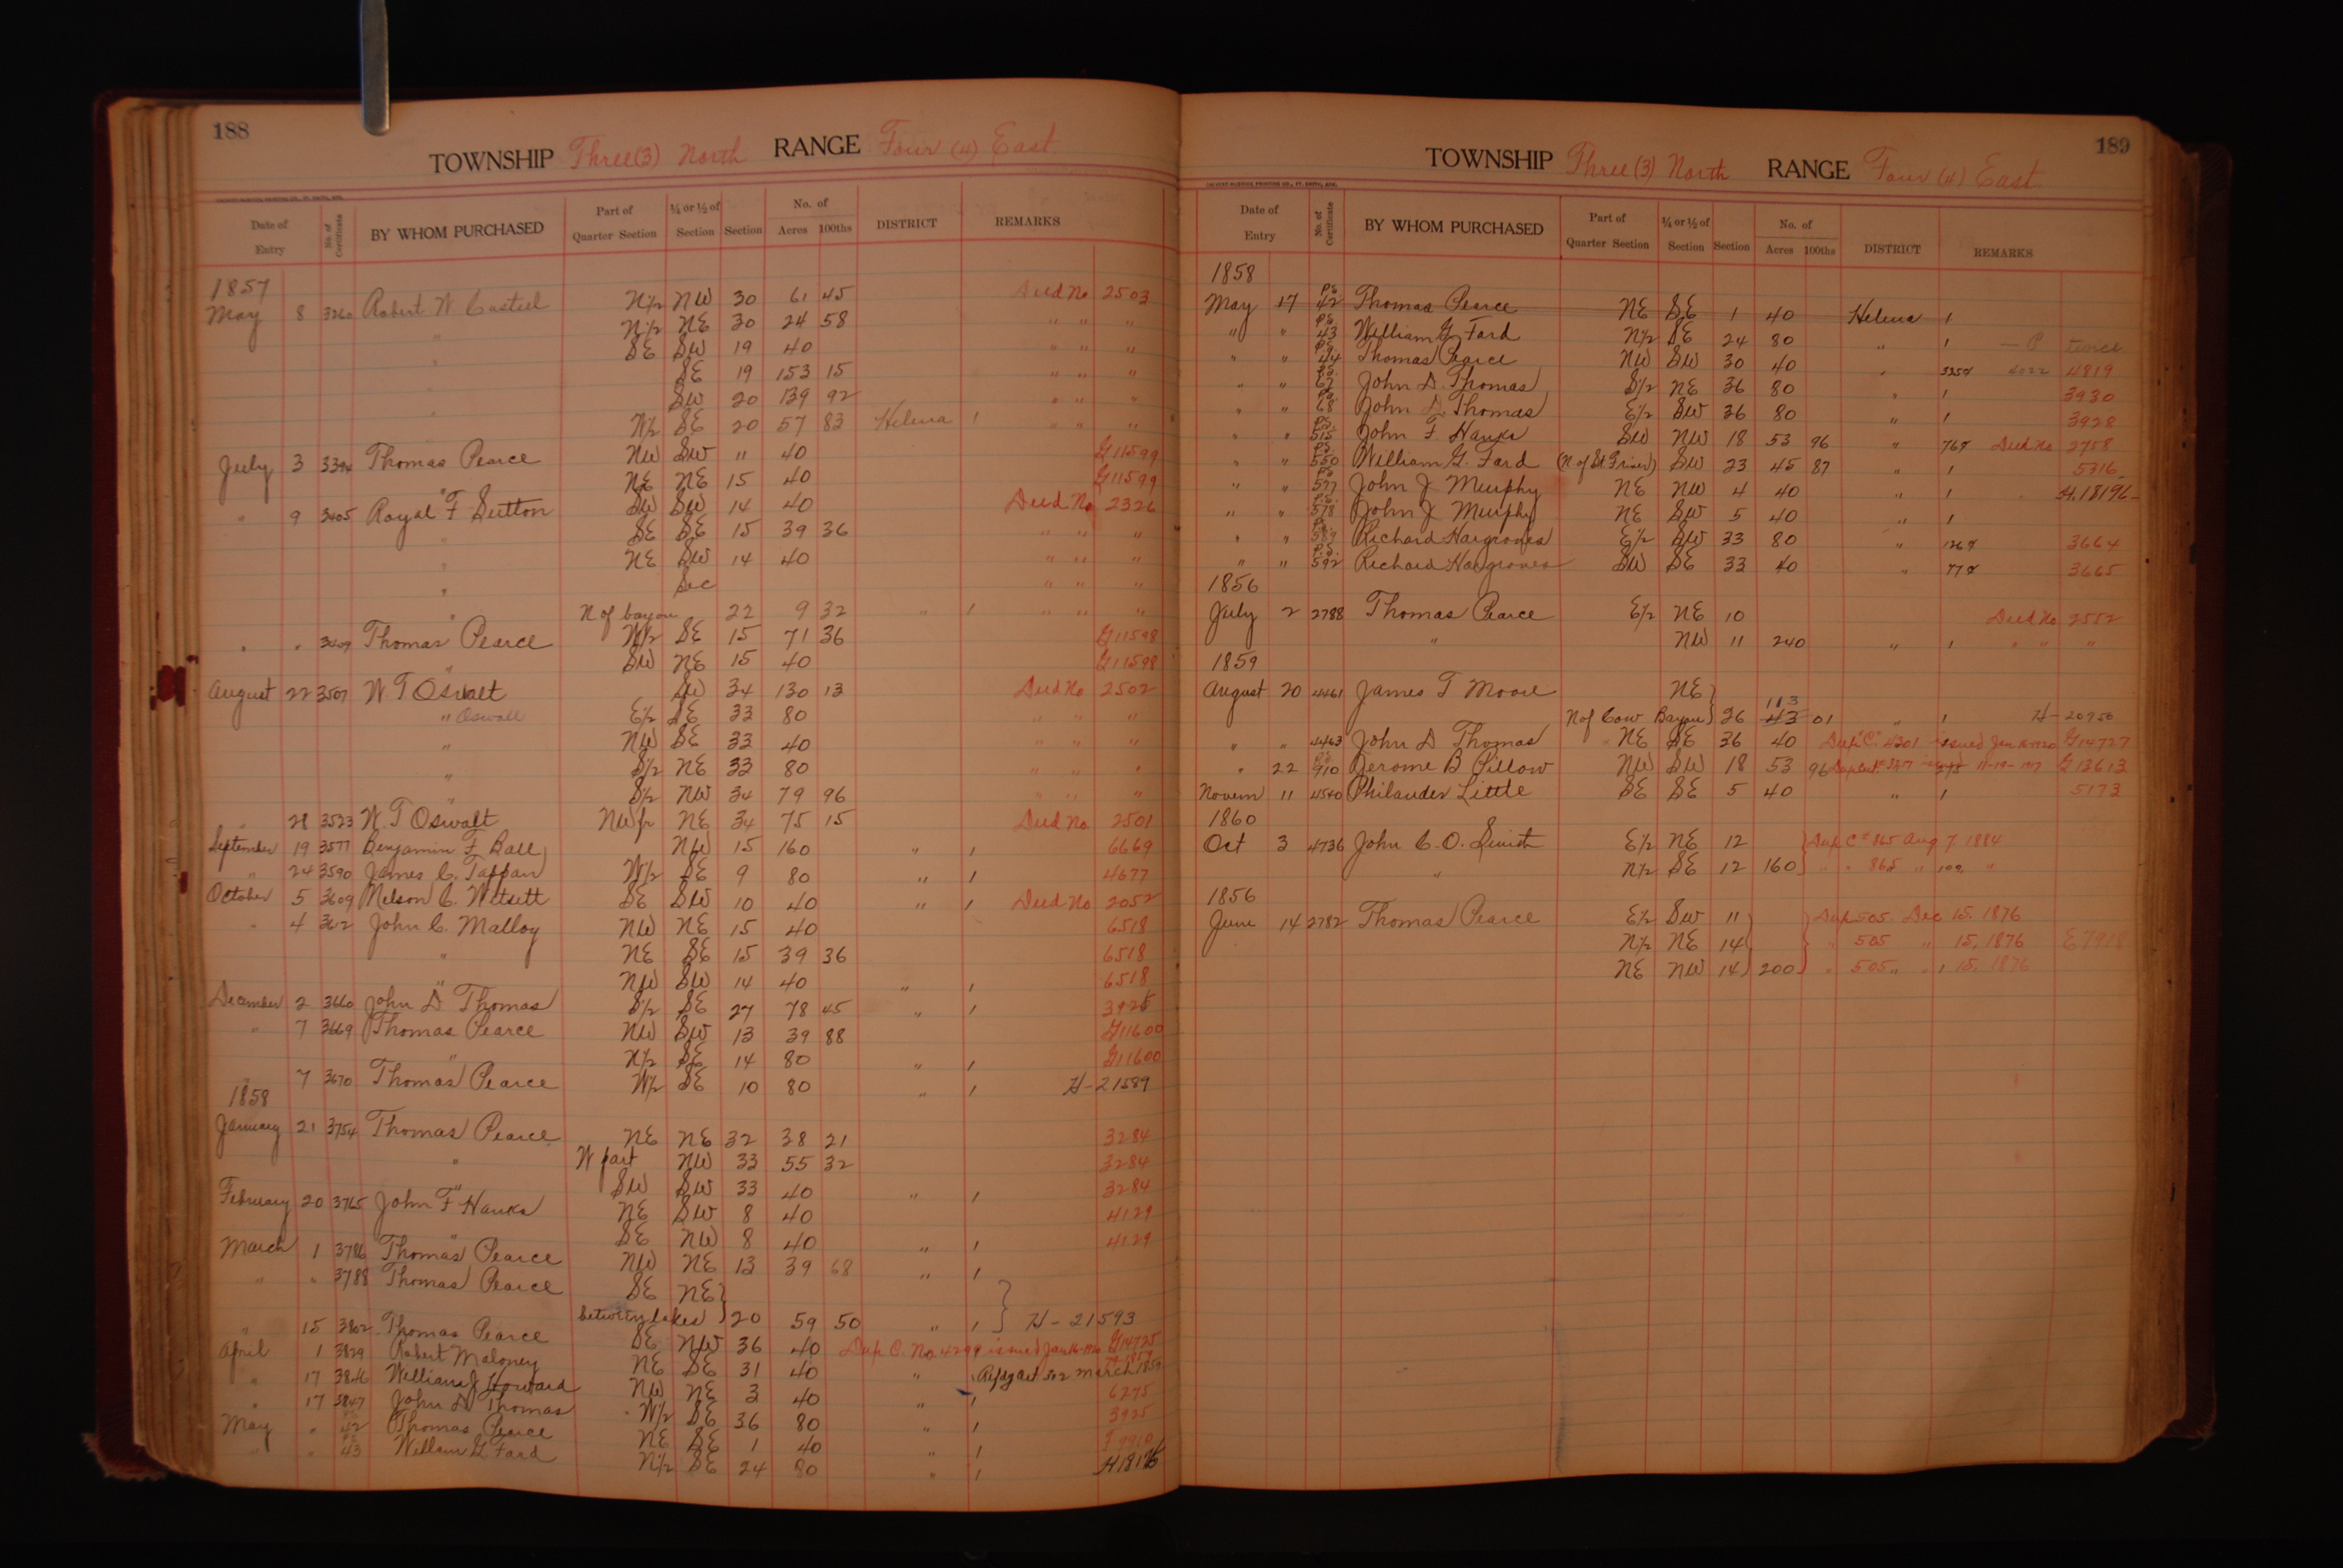 188
TOWNSHIP Three (3) North RANGE Four (4) East
Date of Entry No. of Certificate BY WHOM PURCHASED Part of Quarter Section ¼ or ½ of Section Section No. of Acres 100ths DISTRICT REMARKS
1857
May 8 3260 Robert W Casteel N½ NW 30 61 45 Deed No 2503
" N½ NE 30 24 58 " " "
" SE SW 19 40 " " "
" SE 19 153 15 " " "
" SW 20 139 92 " " "
" W½ SE 20 57 83 Helena 1 " " "
July 3 3394 Thomas Pearce NW SW 11 40 G11599
" NE NE 15 40 G11599
" 9 3405 Royal F Sutton SW SW 14 40 Deed No 2326
" SE SE 15 39 36 " " "
" NE SW 14 40 " " "
" Sec " " "
" N of bayou 22 9 32 " 1 " " "
" " 3409 Thomas Pearce W½ SE 15 71 36 G11598
" SW NE 15 40 G11598
August 22 3507 W. T Oswalt SW 34 130 13 Deed No 2502
" Oswalt E½ SE 33 80 " " "
" NW SE 33 40 " " "
" S½ NE 33 80 " " "
" S½ NW 34 79 96 " " "
" 28 3523 W. T Oswalt NW fr NE 34 75 15 Deed No 2501
September 19 3577 Benjamin F. Ball NW 15 160 " 1 6669
" 24 3590 James C. Tappan W½ SE 9 80 " 1 4677
October 5 3609 Nelson C. Witsett SE SW 10 40 " 1 Deed No 2052
" 4 3612 John C. Malloy NW NE 15 40 6518
" NE SE 15 39 36 6518
" NW SW 14 40 " 1 6518
December 2 3660 John D Thomas S½ SE 27 78 45 " 1 3925
" 7 3669 Thomas Pearce NW SW 13 39 88 G11600
" N½ SE 14 80 " 1 G11600
" 7 3670 Thomas Pearce W½ SE 10 80 " 1 H-21589
1858
January 21 3754 Thomas Pearce NE NE 32 38 21 3284
" W part NW 33 55 32 3284
" SW SW 33 40 " 1 3284
February 20 3765 John F Hanks NE SW 8 40 4129
" SE NW 8 40 " 1 4129
March 1 3786 Thomas Pearce NW NE 13 39 68 " 1
" " 3788 Thomas Pearce SE NE }
between lakes } 20 59 50 " 1 } H-21593
" 15 3802 Thomas Pearce SE NW 36 40 Dup C. No. 4299 issued Jan 16-1920 G14725
April 1 3829 Robert Maloney NE SE 31 40 " 1 March 1859
" 17 3846 William J Howard NW NE 3 40 " 1 6275
" 17 3847 John D Thomas W½ SE 36 80 " 1 3925
May " 42 Thomas Pearce NE SE 1 40 " 1
" " 43 William G. Fard N½ SE 24 80 " 1
189
TOWNSHIP Three (3) North RANGE Four (4) East
Date of Entry No. of Certificate BY WHOM PURCHASED Part of Quarter Section ¼ or ½ of Section Section No. of Acres 100ths DISTRICT REMARKS
1858
May 17 PS 42 Thomas Pearce NE SE 1 40 Helena 1
" " PS 43 William G Fard N½ SE 24 80 " 1 twice
" " PS 44 Thomas Pearce NW SW 30 40 " 4022 4819
" " PS 67 John D. Thomas S½ NE 36 80 " 1 3930
" " PS 68 John D. Thomas E½ SW 36 80 " 1 3928
" " PS 515 John F. Hanks SW NW 18 53 96 " Deed No 2758
" " PS 550 William G. Fard SW 23 45 87 " 1 5316
" " PS 577 John J Murphy NE NW 4 40 " 1 H.18196
" " PS 578 John J Murphy NE SW 5 40 " 1
" " PS 589 Richard Hargroves E½ SW 33 80 " 3664
" " PS 592 Richard Hargroves SW SE 33 40 " 3665
1856
July 2 2788 Thomas Pearce E½ NE 10 Deed No 2552
" NW 11 240 " 1 " " "
1859
August 20 4461 James T Moore NE }
N of Cow Bayou } 26 113 43 01 " 1 H-20950
" " 4463 John D Thomas NE SE 36 40 Dup "C" 4301 issued Jan 16 1920 G14727
" 22 PS 910 Jerome B Pillow NW SW 18 53 96 11-19-1917 G13613
Novem 11 4540 Philander Little SE SE 5 40 " 1 5173
1860
Oct 3 4736 John C. O. Smith E½ NE 12 } Dup C# 865 Aug 7 1884
" N½ SE 12 160 } " " 865 " "
1856
June 14 2782 Thomas Pearce E½ SW 11 } Dup 505. Dec 15. 1876
N½ NE 14 } " 505 " 15, 1876 E7918
NE NW 14 } 200 } " 505 " " 15, 1876